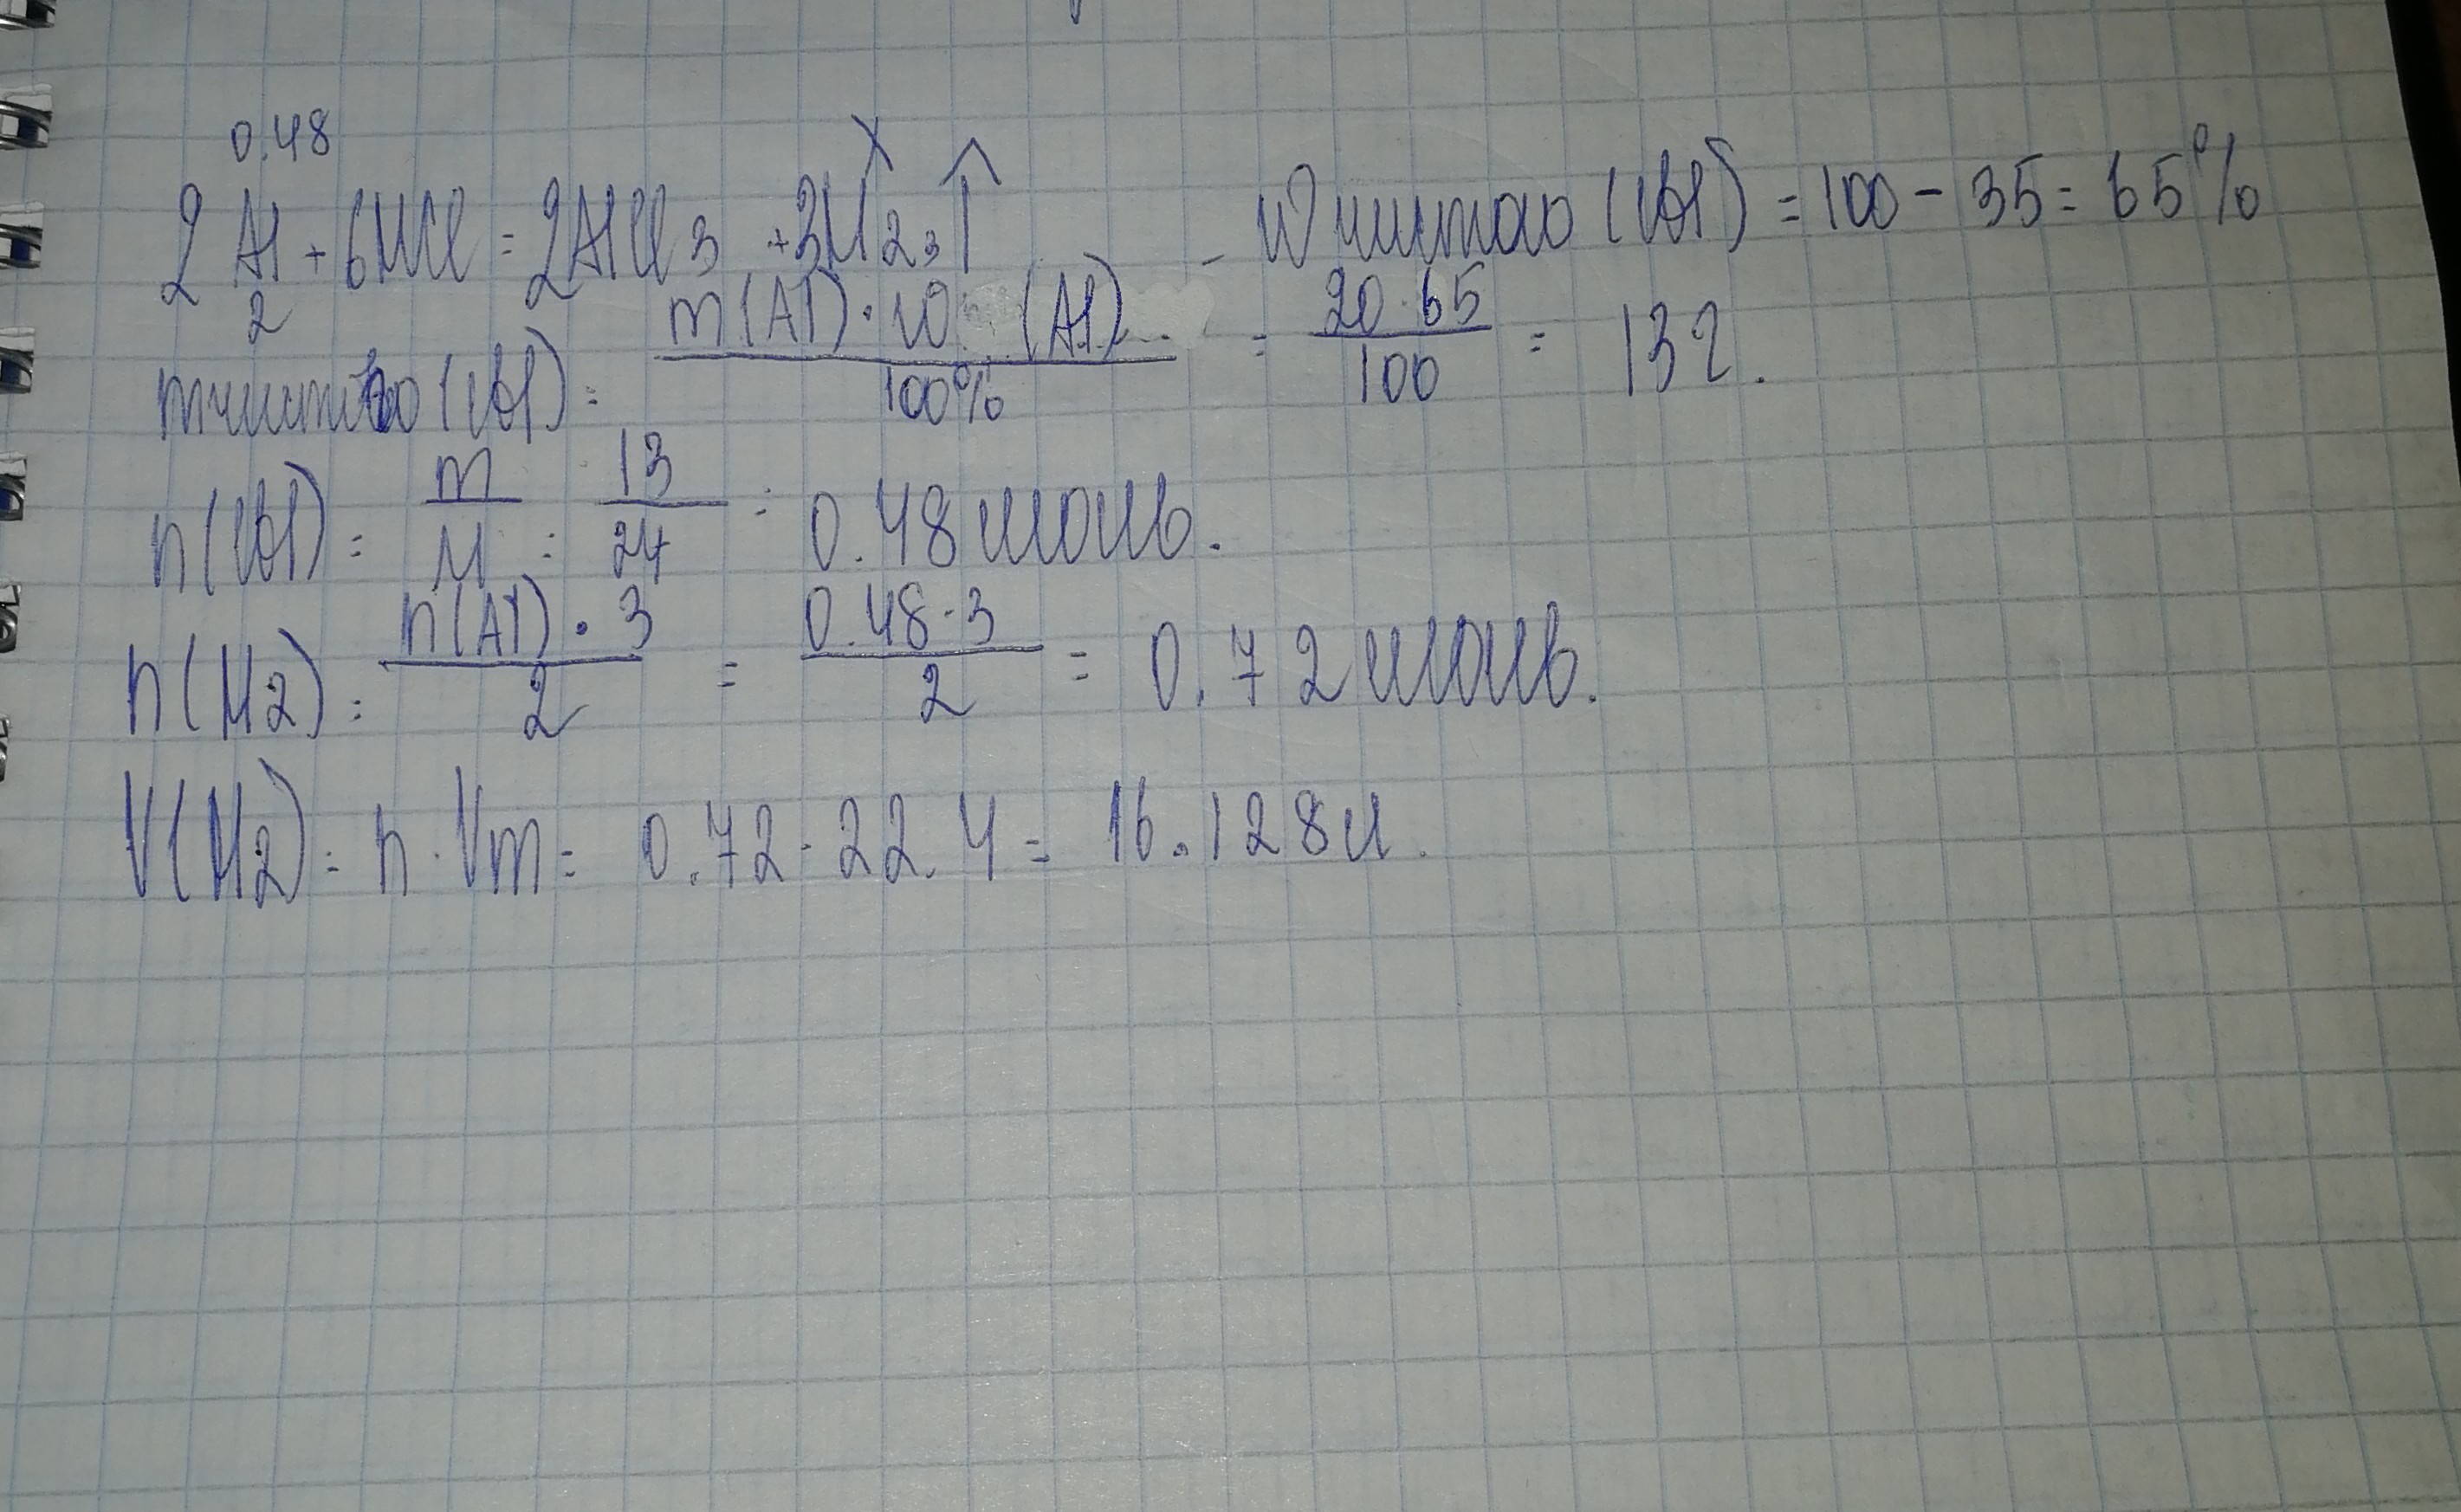 0.48 x
2Al + 6HCl = 2AlCl3 + 3H2↑ - W чистого (Al) = 100 - 35 = 65%
2 3
m чистого (Al) = m(Al) · W (Al) / 100% = 20 · 65 / 100 = 13г.
n(Al) = m / M = 13 / 27 = 0.48 моль.
n(H2) = n(Al) · 3 / 2 = 0.48 · 3 / 2 = 0.72 моль.
V(H2) = n · Vm = 0.72 · 22.4 = 16.128 л.